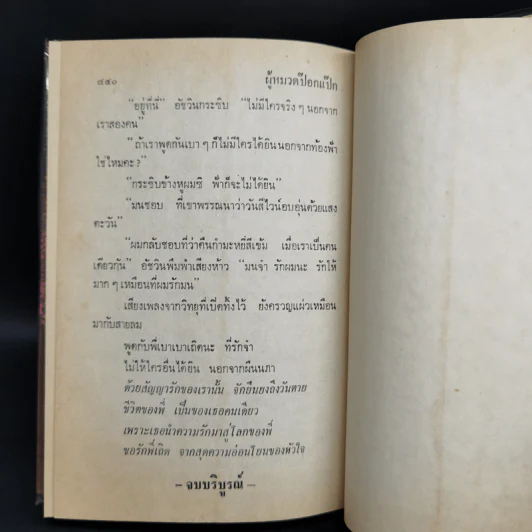 ๔๔๐ ผู้หมวดป๊อกแป๊ก
"อยู่ที่นี่" อัชวินกระซิบ "ไม่มีใครจริง ๆ นอกจาก
เราสองคน"
"ถ้าเราพูดกันเบา ๆ ก็ไม่มีใครได้ยินนอกจากท้องฟ้า
ใช่ไหมคะ?"
"กระซิบข้างหูผมซิ ฟ้าก็จะไม่ได้ยิน"
"มนชอบ ที่เขาพรรณนาว่าวันสีไวน์อบอุ่นด้วยแสง
ตะวัน"
"ผมกลับชอบที่ว่าคืนกำมะหยี่สีเข้ม เมื่อเราเป็นคน
เดียวกัน" อัชวินพึมพำเสียงห้าว "มนจ๋า รักผมนะ รักให้
มาก ๆ เหมือนที่ผมรักมน"
เสียงเพลงจากวิทยุที่เปิดทิ้งไว้ ยังครวญแผ่วเหมือน
มากับสายลม
พูดกับพี่เบาเบาเถิดนะ ที่รักจ๋า
ไม่ให้ใครอื่นได้ยิน นอกจากผืนนภา
ด้วยสัญญารักของเรานั้น จักยืนยงถึงวันตาย
ชีวิตของพี่ เป็นของเธอคนเดียว
เพราะเธอนำความรักมาสู่โลกของพี่
ขอรักพี่เถิด จากสุดความอ่อนโยนของหัวใจ
– จบบริบูรณ์ –